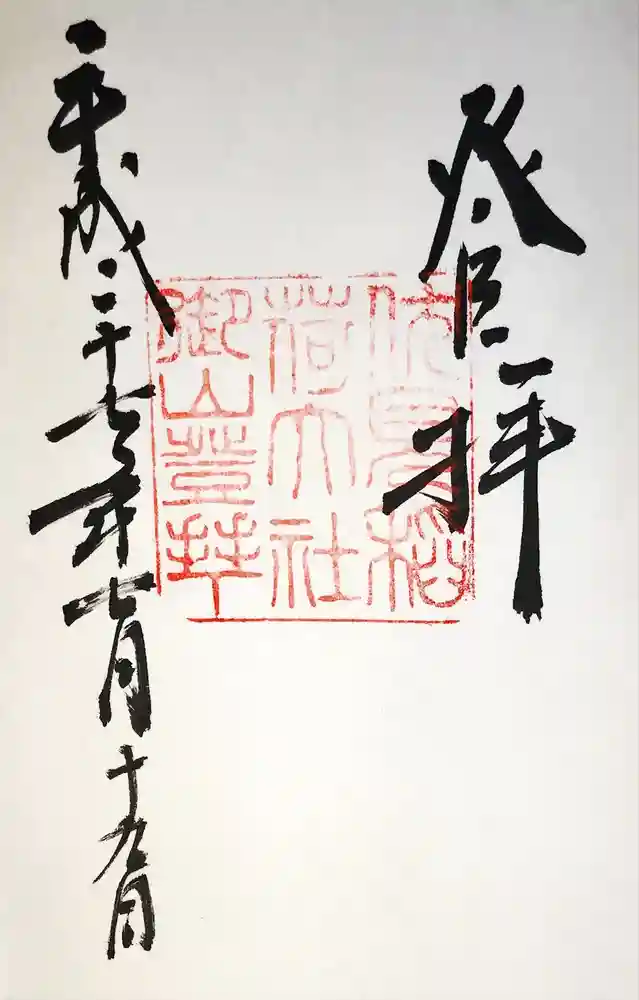 登拝
伏見稲
荷大社
御山登拝
平成二十七年七月十九日